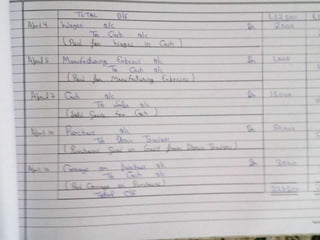 TOTAL B/F 1,52,500
April 4 Wages a/c Dr 2000
To Cash a/c
(Paid for Wages in Cash)
April 5 Manufacturing Expenses a/c Dr 1,000
To Cash a/c
(Paid for Manufacturing Expenses)
April 7 Cash a/c Dr 15000
To Sales a/c
(Sold Goods for Cash)
April 10 Purchases a/c Dr 50,000
To Traders
(Purchased Goods on Credit from Traders)
April Carriage on Purchases a/c Dr 3000
To Cash a/c
(Paid Carriage on Purchase)
Total C/F 2,23,500